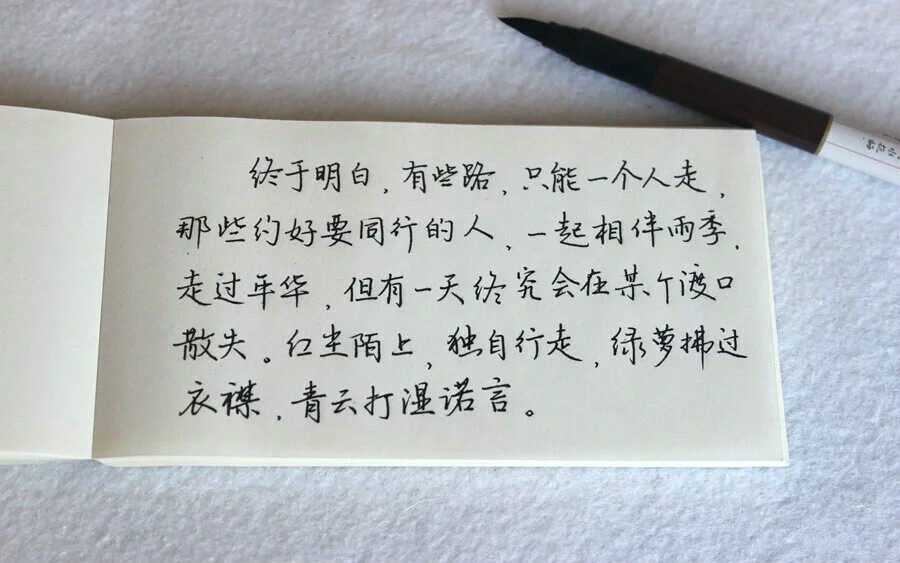 终于明白，有些路，只能一个人走，
那些约好要同行的人，一起相伴雨季，
走过年华，但有一天终究会在某个渡口
散失。红尘陌上，独自行走，绿萝拂过
衣襟，青云打湿诺言。